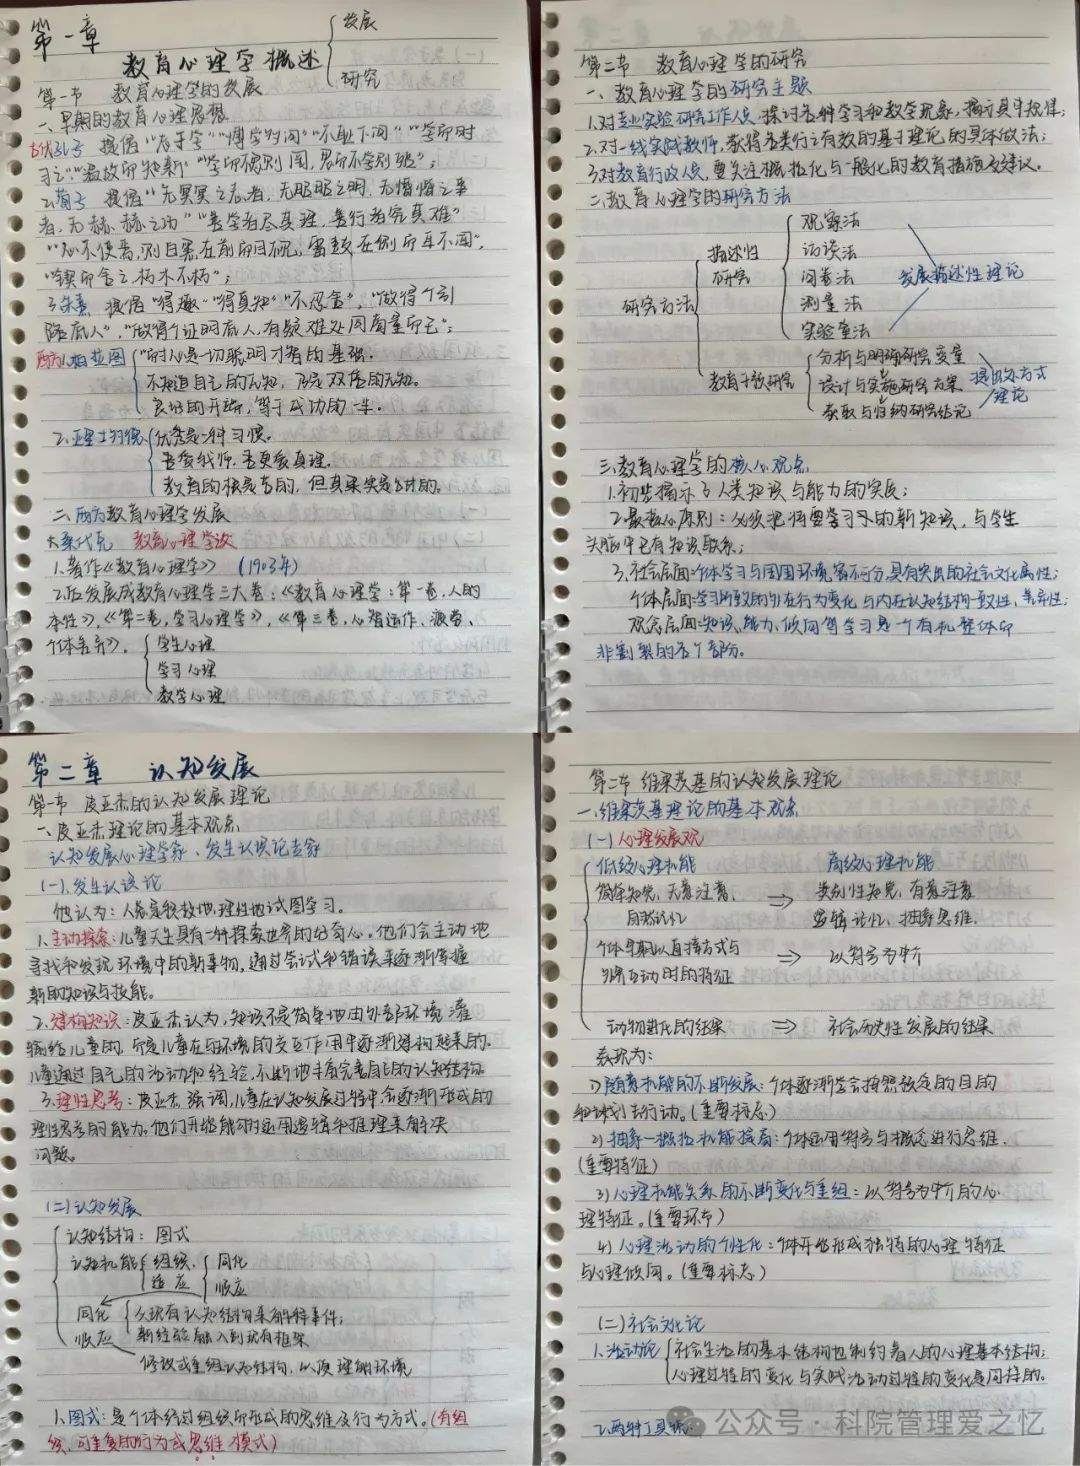 第一章
教育心理学概述
发展
研究
第一节 教育心理学的发展
一、早期的教育心理思想
古代孔子 提倡“志于学”“博学时问”“不耻下问”“学而时
习之”“温故而知新”
2.荀子 提倡“无冥冥之志者，无昭昭之明，无惛惛之事
者，无赫赫之功”“善学者尽其理，善行者究其难”
“心不使焉，则白黑在前而目不视，雷鼓在侧而耳不闻”，
“锲而舍之朽木不朽”；
提倡“得趣”“得真知”“不忍舍”，“做得个引
路底人”，“做得个证明底人，有疑难处同商量而已”；
西方1.柏拉图
耐心是一切聪明才智的基础。
不知道自己的无知，乃是双倍的无知。
良好的开端，等于成功的一半。
2.亚里士多德
优秀是一种习惯。
吾爱我师，吾更爱真理。
教育的根是苦的，但其果实是甜的。
二、西方教育心理学发展
桑代克 教育心理学
1.著作《教育心理学》 （1903年）
2.后发展成教育心理学三大卷：《教育心理学：第一卷，人的
本性》，《第二卷，学习心理学》，《第三卷，心智运作、疲劳、
个体差异》。
学生心理
学习心理
教学心理
第二节 教育心理学的研究
一、教育心理学的研究主题
1.对专业实验研究工作人员，探讨各种学习和教学现象，揭示其中规律；
2.对一线实践教师，获得各类行之有效的基于理论的具体做法；
3.对教育行政人员，要关注概括化与一般化的教育措施及建议。
二、教育心理学的研究方法
研究方法
描述性
研究
观察法
访谈法
问卷法
测量法
实验室法
发展描述性理论
教育干预研究
分析与明确研究变量
设计与实施研究方案
获取与归纳研究结论
提出处方式
理论
三、教育心理学的核心观点
1.初步揭示了人类知识与能力的实质；
2.最核心原则：必须把将要学习的新知识，与学生
头脑中已有知识联系；
3.社会层面：个体学习与周围环境密不可分，具有突出的社会文化属性；
个体层面：学习所致的外在行为变化与内在认知结构一致性、差异性；
观念层面：知识、能力、倾向等学习是一个有机整体而
非割裂的各个部分。
第二章 认知发展
第一节 皮亚杰的认知发展理论
一、皮亚杰理论的基本观点
认知发展心理学家、发生认识论专家
（一）、发生认识论
他认为：人总是积极地，理性地试图学习。
1.主动探索：儿童天生具有一种探索世界的好奇心。他们会主动地
寻找和发现环境中的新事物，通过尝试和错误来逐渐掌握
新的知识与技能。
2.建构知识：皮亚杰认为，知识不是简单地由外部环境灌
输给儿童的，而是儿童在与环境的交互作用中逐渐建构起来的。
儿童通过自己的活动和经验，不断地丰富完善自己的认知结构。
3.理性思考：皮亚杰强调，儿童在认知发展过程中会逐渐形成的
理性思考的能力。他们开始能够运用逻辑和推理来解决
问题。
（二）认知发展
认知结构：图式
认知机能
组织
适应
同化
顺应
同化
从现有认知结构来解释事件；
新经验融入到现有框架
顺应
修改或重组认知结构，以及理解环境
1.图式：是个体经过组织而形成的思维及行为方式。（有组
织、可重复的行为或思维模式）
第二节 维果茨基的认知发展理论
一、维果茨基理论的基本观点
（一）心理发展观
低级心理机能 高级心理机能
简单知觉，无意注意， ⇒ 类别性知觉，有意注意
自然记忆 逻辑记忆，抽象思维.
个体早期以直接方式与 ⇒ 以符号为中介
外界互动时的特征
动物进化的结果 ⇒ 社会历史性发展的结果
表现为：
1）随意机能的不断发展：个体逐渐学会按照预定的目的
和计划去行动。（重要标志）
2）抽象—概括机能提高：个体运用符号与概念进行思维.
（重要特征）
3）心理机能关系的不断变化与重组：以符号为中介的心
理特征。（重要环节）
4）心理活动的个性化：个体开始形成独特的心理特征
与心理倾向。（重要标志）
（二）社会文化论
1.活动论
社会生活的基本结构也制约着人的心理基本结构；
心理过程的变化与实践活动过程的变化是同样的。
2.两种工具
公众号·科院管理爱之忆